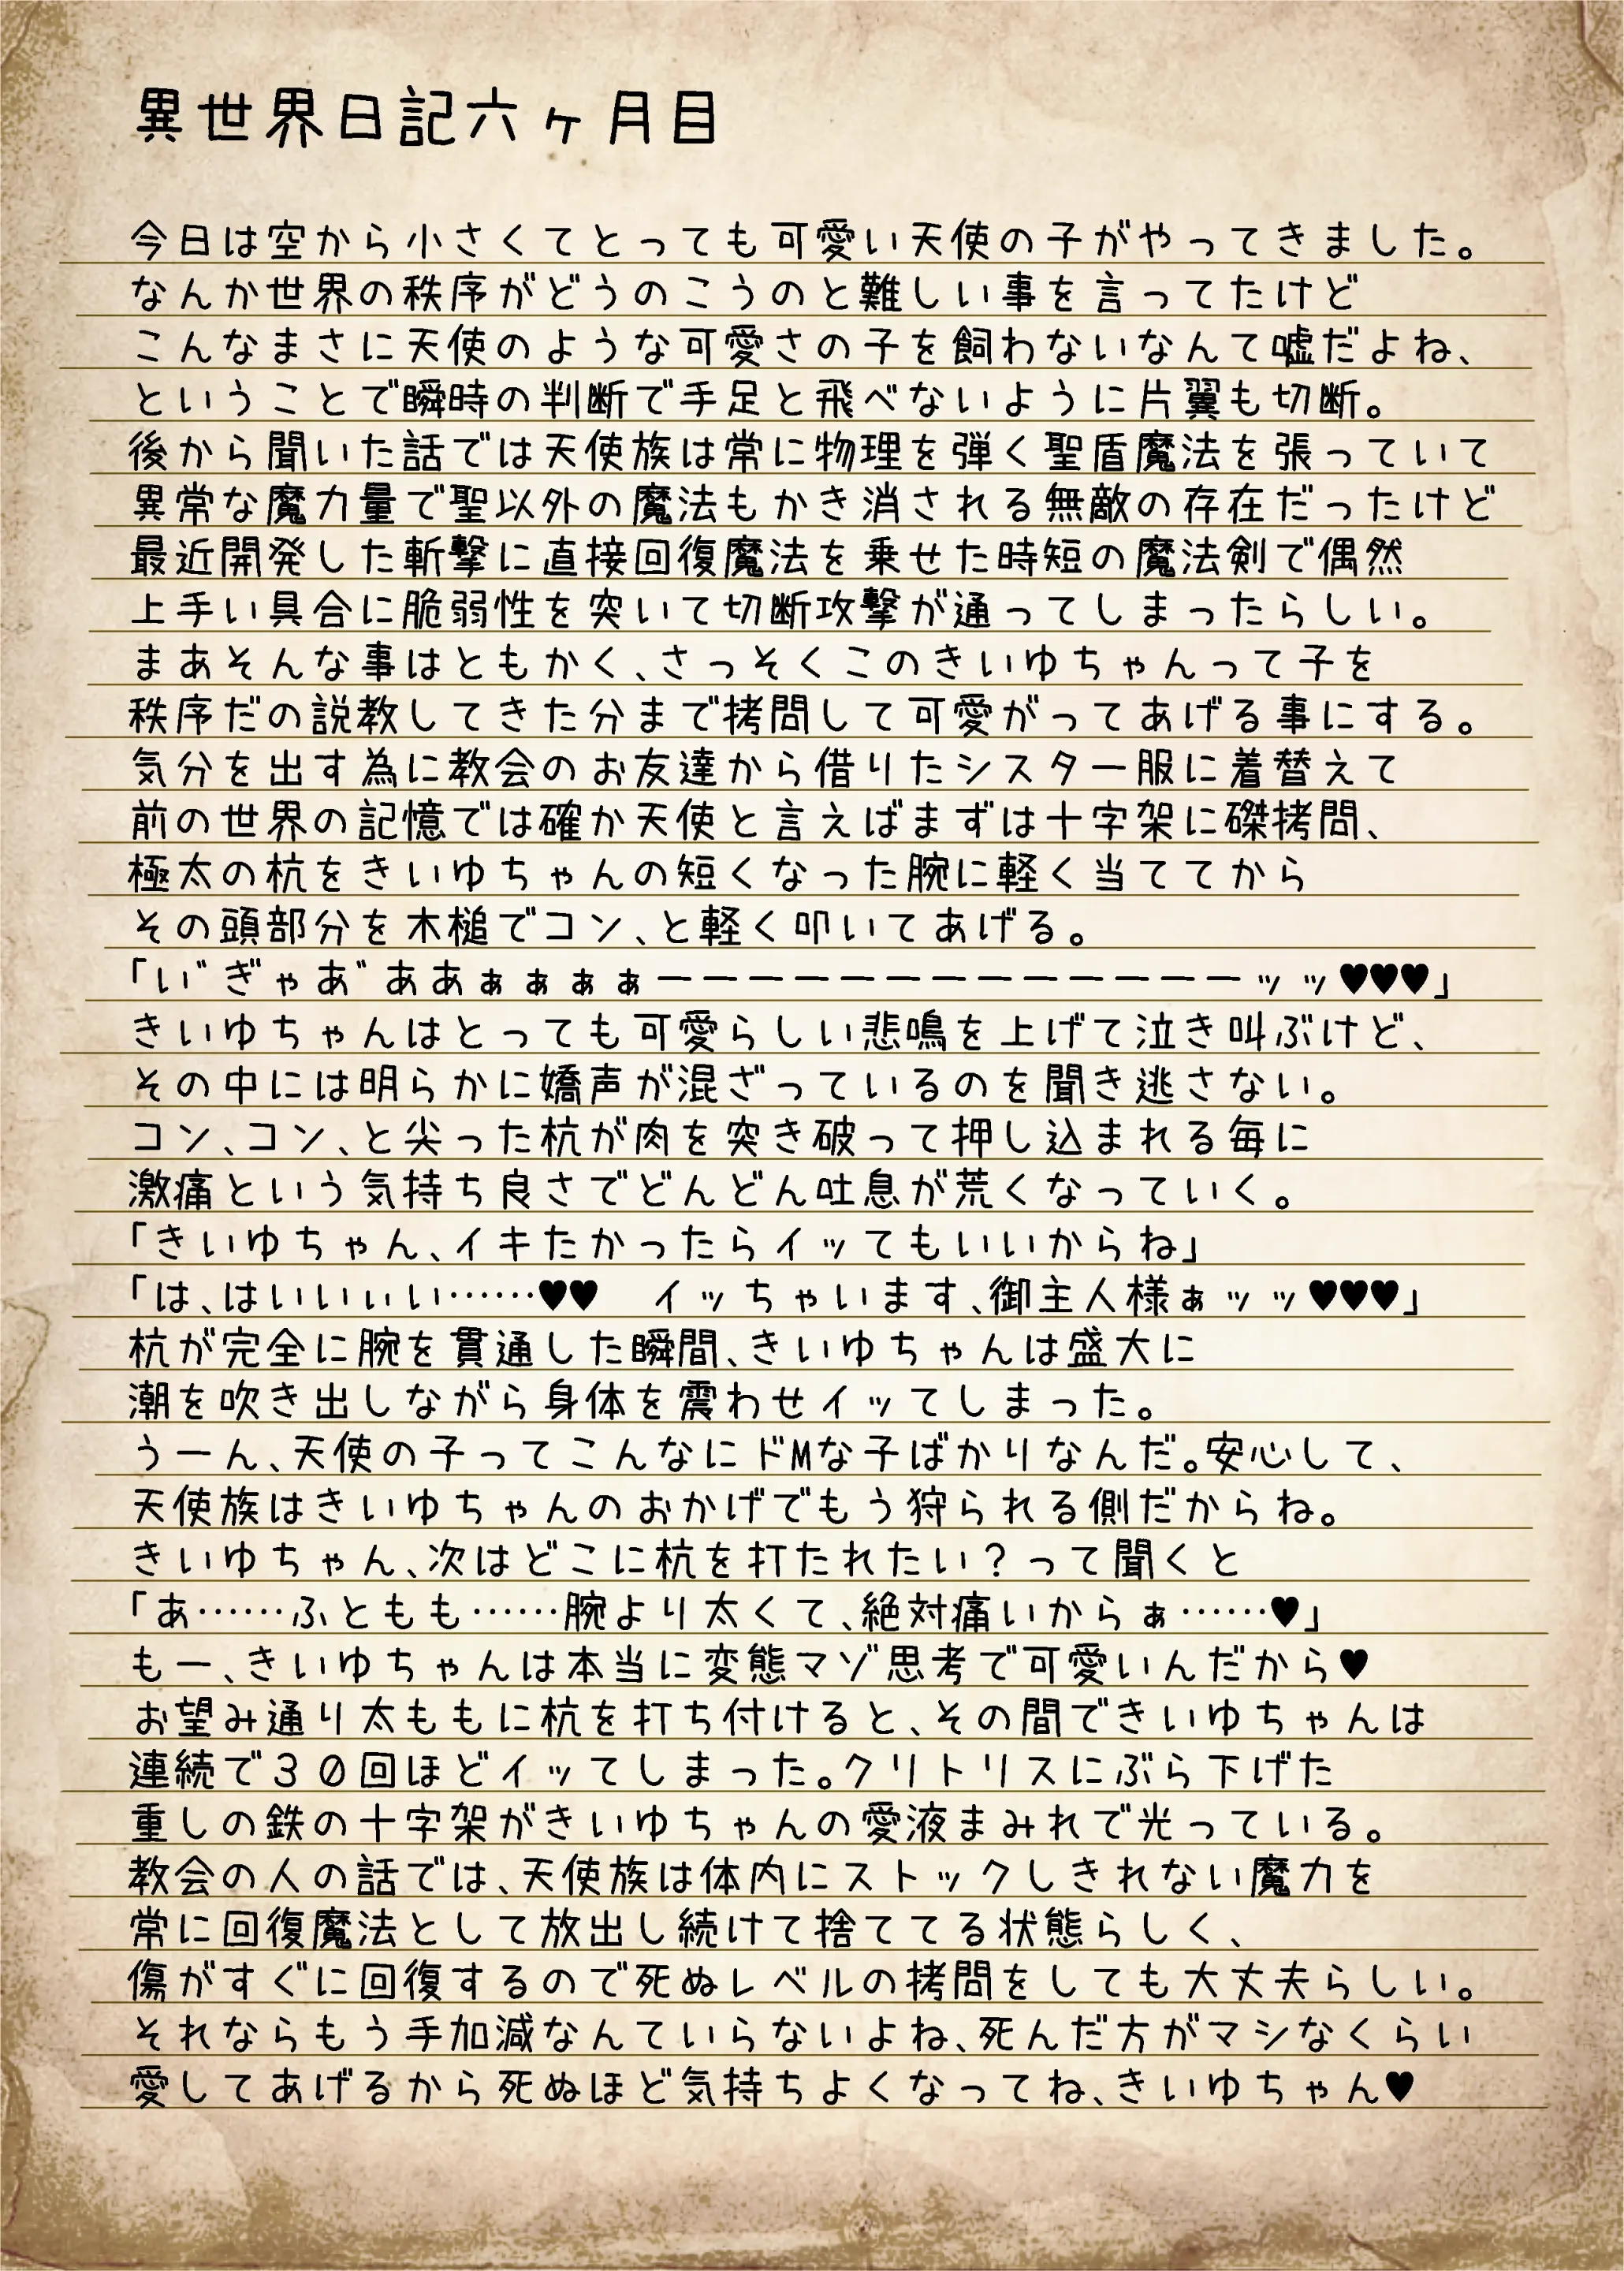 異世界日記六ヶ月目
今日は空から小さくてとっても可愛い天使の子がやってきました。
なんか世界の秩序がどうのこうのと難しい事を言ってたけど
こんなまさに天使のような可愛さの子を飼わないなんて嘘だよね、
ということで瞬時の判断で手足と飛べないように片翼も切断。
後から聞いた話では天使族は常に物理を弾く聖盾魔法を張っていて
異常な魔力量で聖以外の魔法もかき消される無敵の存在だったけど
最近開発した斬撃に直接回復魔法を乗せた時短の魔法剣で偶然
上手い具合に脆弱性を突いて切断攻撃が通ってしまったらしい。
まあそんな事はともかく、さっそくこのきいゆちゃんって子を
秩序だの説教してきた分まで拷問して可愛がってあげる事にする。
気分を出す為に教会のお友達から借りたシスター服に着替えて
前の世界の記憶では確か天使と言えばまずは十字架に磔拷問、
極太の杭をきいゆちゃんの短くなった腕に軽く当ててから
その頭部分を木槌でコン、と軽く叩いてあげる。
「い゛ぎゃあ゛ああぁぁぁぁーーーーーーーーーーーーーッッ♥♥♥」
きいゆちゃんはとっても可愛らしい悲鳴を上げて泣き叫ぶけど、
その中には明らかに嬌声が混ざっているのを聞き逃さない。
コン、コン、と尖った杭が肉を突き破って押し込まれる毎に
激痛という気持ち良さでどんどん吐息が荒くなっていく。
「きいゆちゃん、イキたかったらイッてもいいからね」
「は、はいいぃい……♥♥　イッちゃいます、御主人様ぁッッ♥♥♥」
杭が完全に腕を貫通した瞬間、きいゆちゃんは盛大に
潮を吹き出しながら身体を震わせイッてしまった。
うーん、天使の子ってこんなにドMな子ばかりなんだ。安心して、
天使族はきいゆちゃんのおかげでもう狩られる側だからね。
きいゆちゃん、次はどこに杭を打たれたい？って聞くと
「あ……ふともも……腕より太くて、絶対痛いからぁ……♥」
もー、きいゆちゃんは本当に変態マゾ思考で可愛いんだから♥
お望み通り太ももに杭を打ち付けると、その間できいゆちゃんは
連続で３０回ほどイッてしまった。クリトリスにぶら下げた
重しの鉄の十字架がきいゆちゃんの愛液まみれで光っている。
教会の人の話では、天使族は体内にストックしきれない魔力を
常に回復魔法として放出し続けて捨ててる状態らしく、
傷がすぐに回復するので死ぬレベルの拷問をしても大丈夫らしい。
それならもう手加減なんていらないよね、死んだ方がマシなくらい
愛してあげるから死ぬほど気持ちよくなってね、きいゆちゃん♥